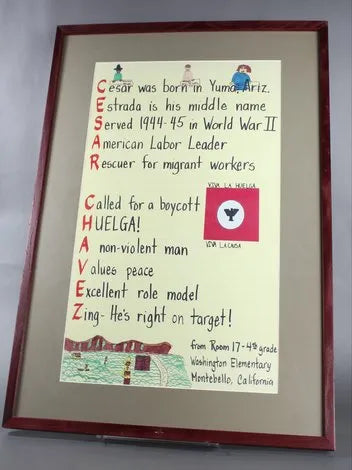 Cesar was born in Yuma, Ariz.
Estrada is his middle name
Served 1944-45 in World War II
American Labor Leader
Rescuer for migrant workers
VIVA LA HUELGA
Called for a boycott
HUELGA!
A non-violent man
VIVA LA CAUSA
Values peace
Excellent role model
Zing- He's right on target!
from Room 17-4th grade
Washington Elementary
Montebello, California